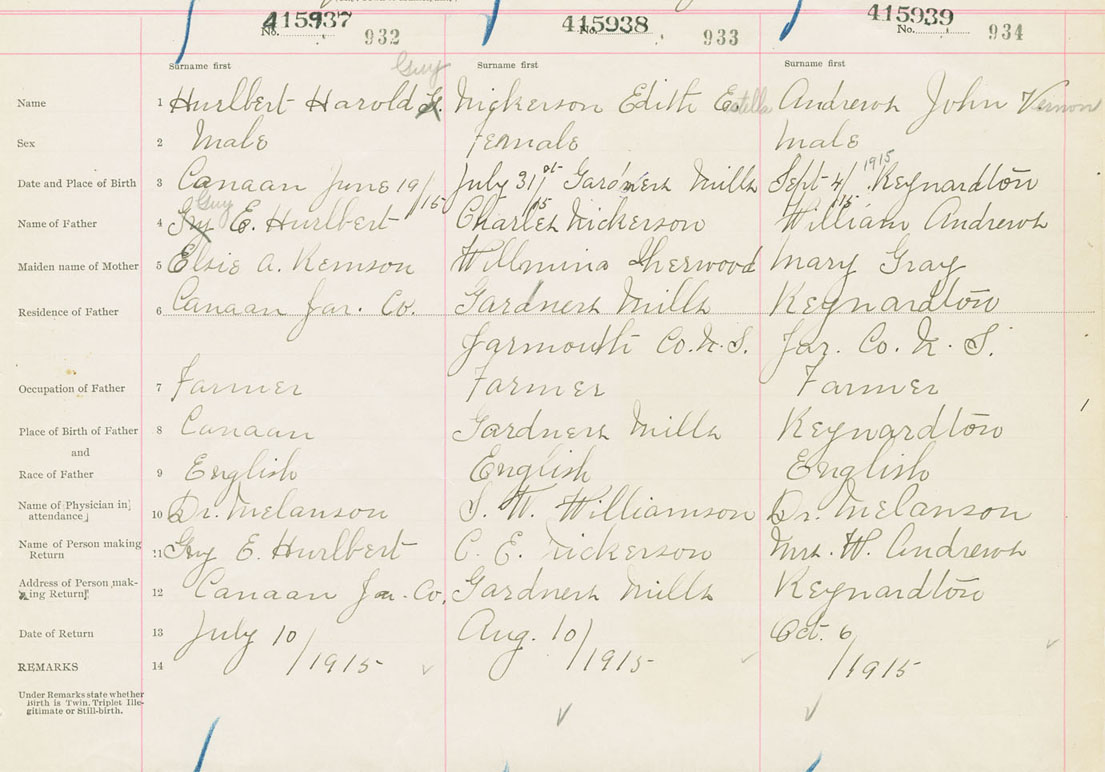 415937 415938 415939
No. 932 No. 933 No. 934
Surname first Surname first Surname first
Guy
Name 1 Hurlbert Harold G. Nickerson Edith Estella Andrews John Vernon
Sex 2 Male Female Male
Date and Place of Birth 3 Canaan June 19/15 July 31st/15 Gardners Mills Sept 4/15 1915 Reynardton
Guy
Name of Father 4 Guy E. Hurlbert Charles Nickerson William Andrews
Maiden name of Mother 5 Elsie A. Kemson Willmina Sherwood Mary Gray
Residence of Father 6 Canaan Yar. Co. Gardners Mills Reynardton
Yarmouth Co. N. S. Yar. Co. N. S.
Occupation of Father 7 Farmer Farmer Farmer
Place of Birth of Father 8 Canaan Gardners Mills Reynardton
and
Race of Father 9 English English English
Name of [Physician in
attendance] 10 Dr. Melanson S. W. Williamson Dr. Melanson
Name of Person making
Return 11 Guy E. Hurlbert C. E. Nickerson Mrs. W. Andrews
Address of Person mak-
ing Return 12 Canaan Yar. Co. Gardners Mills Reynardton
Date of Return 13 July 10/1915 Aug. 10/1915 Oct. 6/1915
REMARKS 14
Under Remarks state whether
Birth is Twin, Triplet Ille-
gitimate or Still-birth.